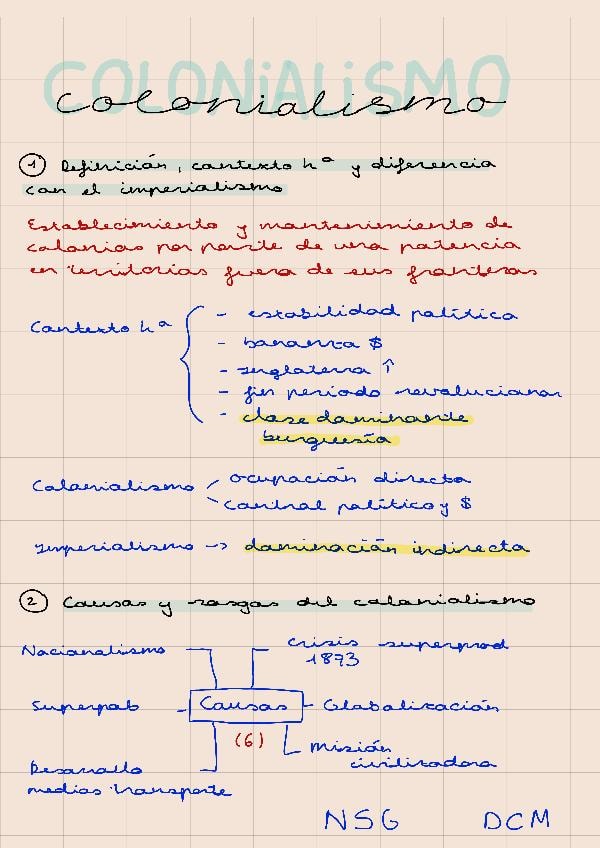 COLONiALiSMO
colonialismo
1 Definición, contexto hª y diferencia
con el imperialismo
Establecimiento y mantenimiento de
colonias por parte de una potencia
en territorios fuera de sus fronteras
Contexto hª
- estabilidad política
- bonanza $
- Inglaterra ↑
- fin período revolucionar
- clase dominante
burguesía
Colonialismo
ocupación directa
control político y $
Imperialismo -> dominación indirecta
2 Causas y rasgos del colonialismo
Nacionalismo
Crisis superprod
1873
Superpob
Causas
Globalización
(6)
Misión
civilizadora
Desarrollo
medios transporte
NSG DCM